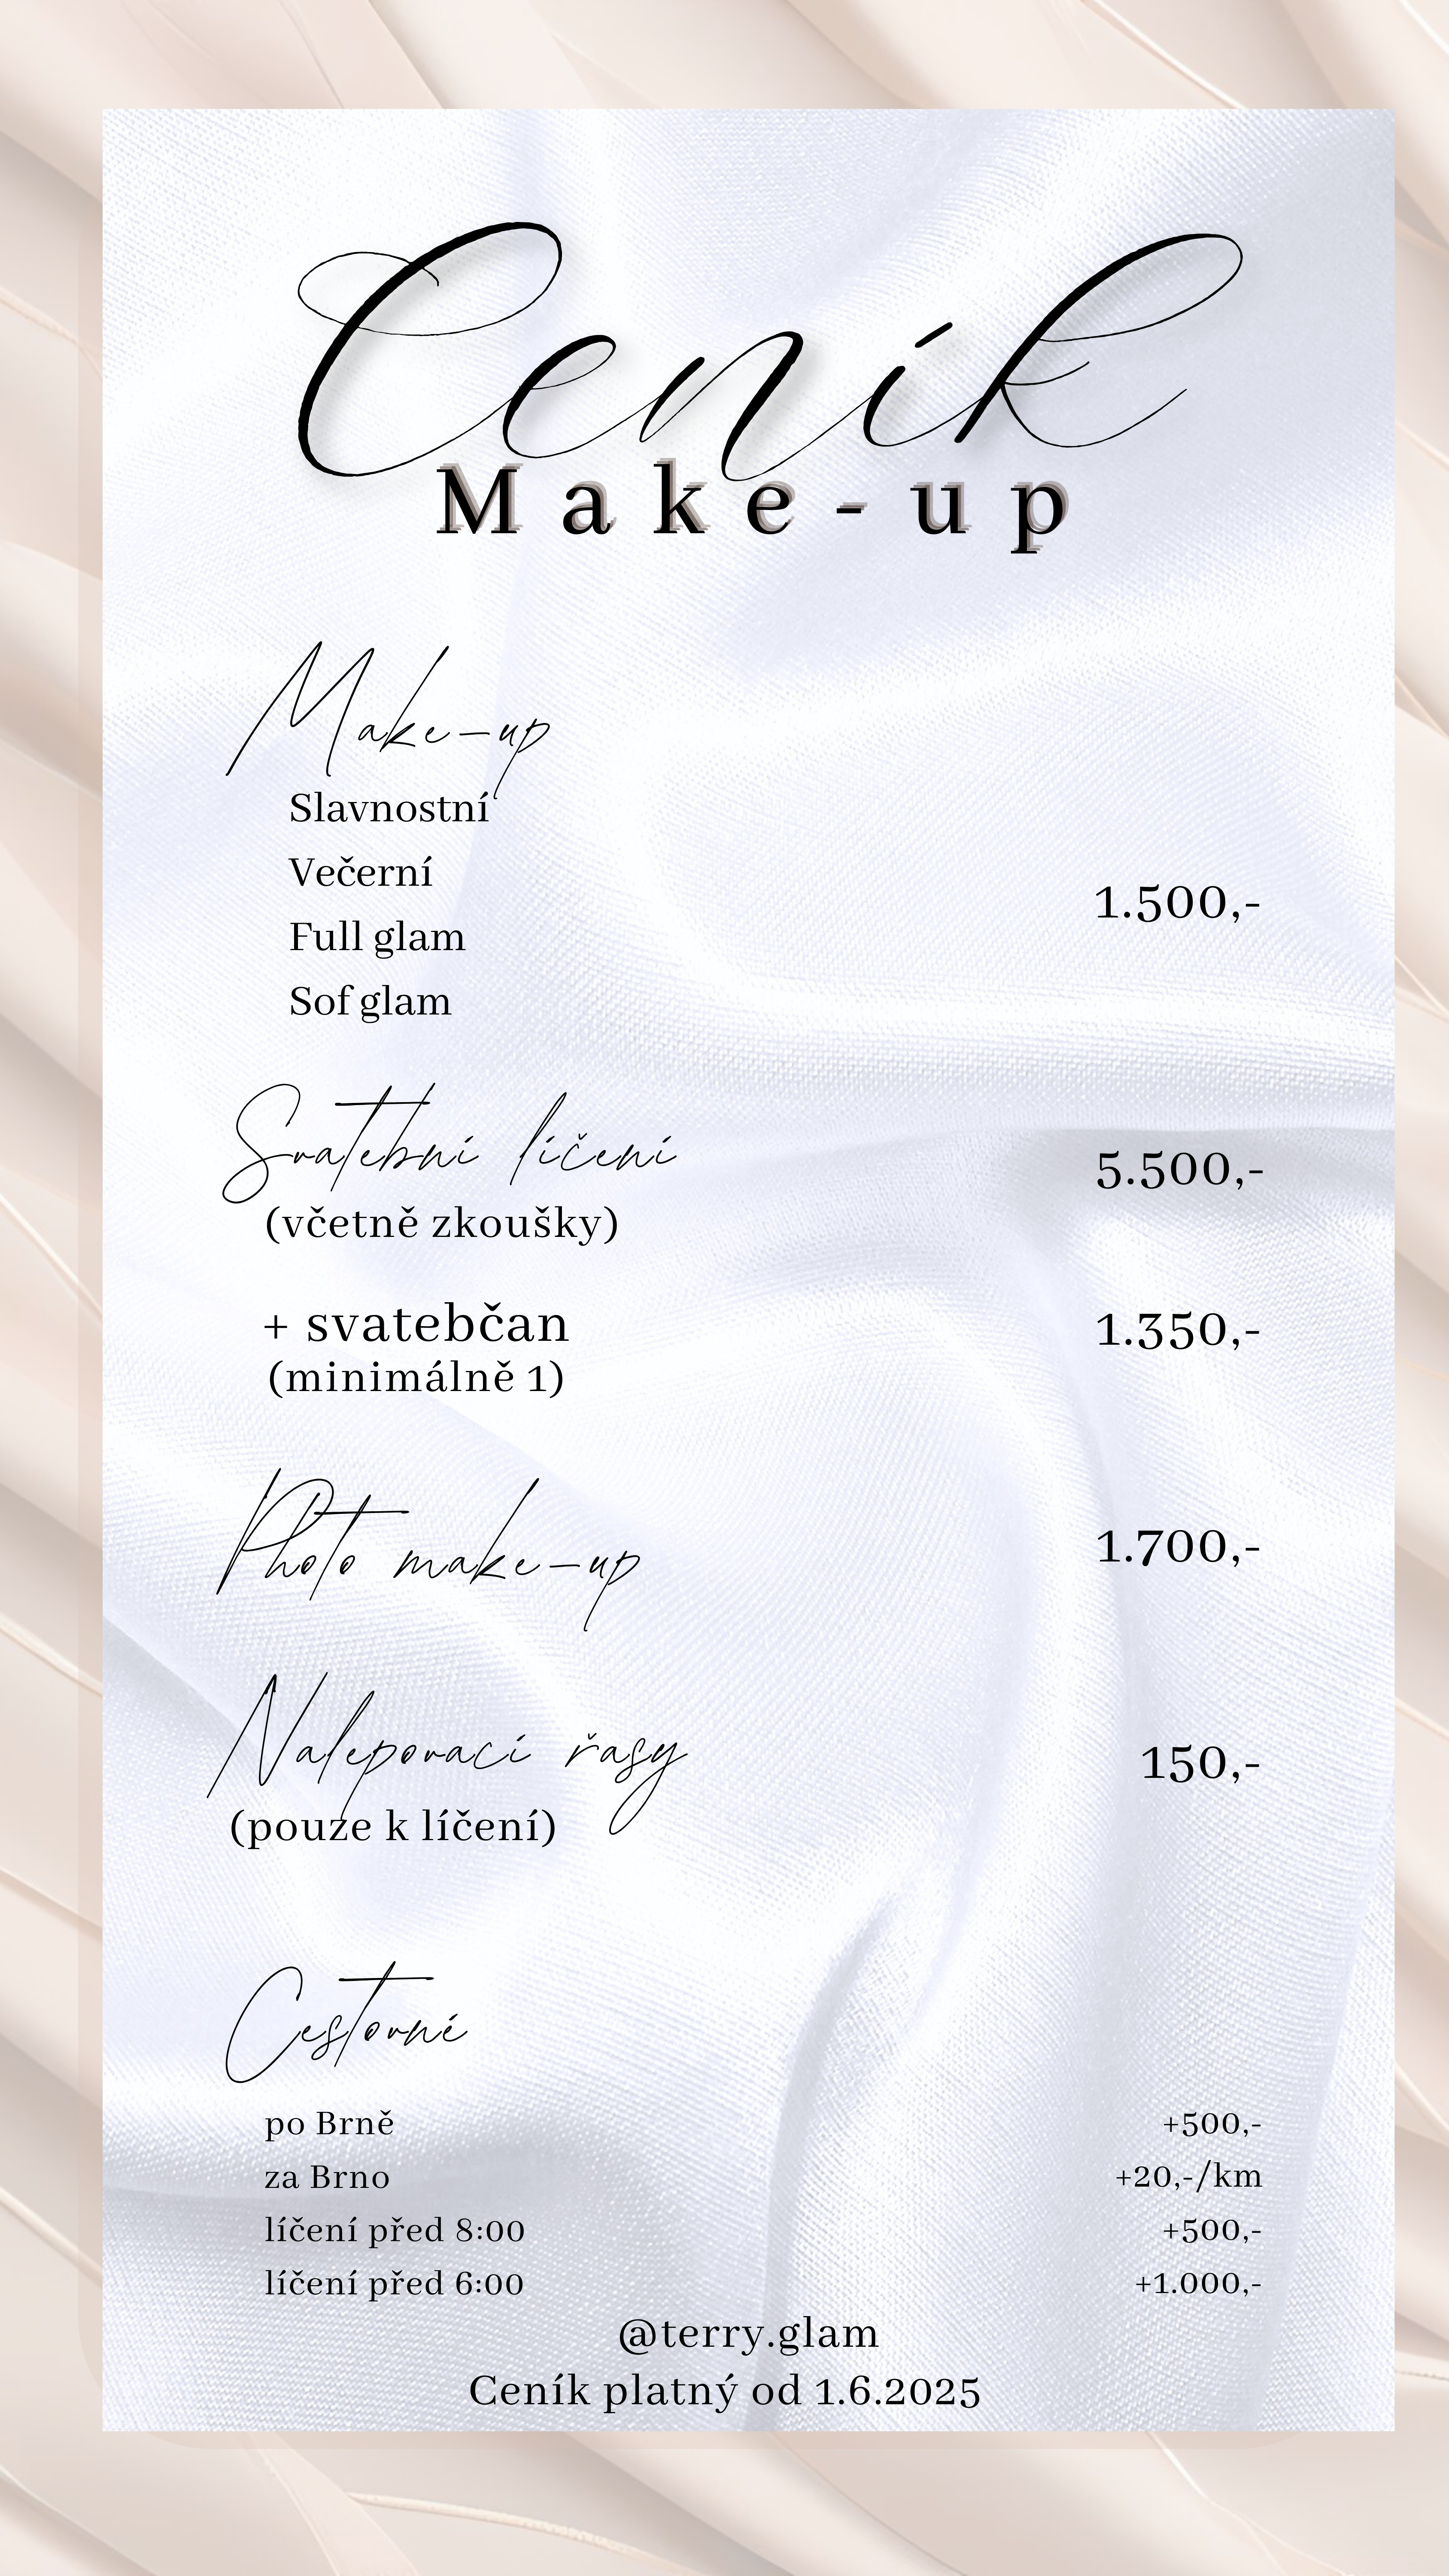 Ceník
Make-up
Make-up
Slavnostní
Večerní
Full glam
Sof glam
1.500,-
Svatební líčení
(včetně zkoušky)
5.500,-
+ svatebčan
(minimálně 1)
1.350,-
Photo make-up
1.700,-
Nalepovací řasy
(pouze k líčení)
150,-
Cestovné
po Brně +500,-
za Brno +20,-/km
líčení před 8:00 +500,-
líčení před 6:00 +1.000,-
@terry.glam
Ceník platný od 1.6.2025